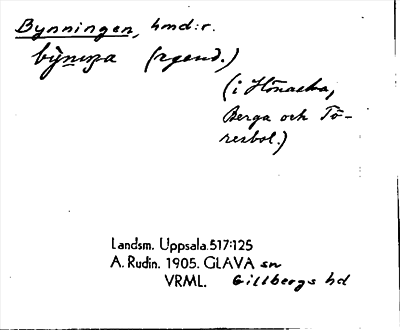 Bynningen, hmd:r.
(i Hönacka,
Berga och Tö-
resbol.)
Landsm. Uppsala.517:125
A. Rudin. 1905. GLAVA sn
VRML. Gillbergs hd